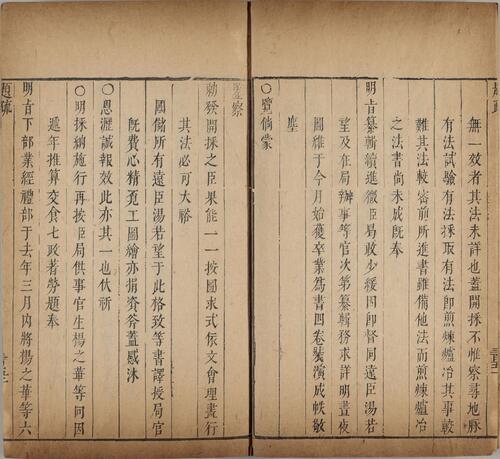 無一效者其法未詳也爲書開採不惟察尋地脉
有法試騐有法採取有法卽煎煉爐冶其事較
難其法較密前所進書雖備他法而煎煉爐冶
之法書尚未成旣奉
明旨纂輯續進微臣曷敢少緩因卽督同遠臣湯若
望及在局辦事等官次第纂輯務求詳明晝夜
圖維于今月始獲卒業爲書四卷裝潢成帙敬
塵
○覽倘蒙
聖察
勑發開採之臣果能一一按圖求式依文會理盡行
其法必可大裕
國儲所有遠臣湯若望于此格致等書譯授局官
旣費心精宛工圖繪亦捐資斧蓋感沐
○恩瀝誠報效此亦其一也伏祈
○明採納施行再按臣局供事官生楊之華等向因
遞年推算交食七政著勞題奉
明旨下部業經禮部于去年三月內將楊之華等六
題疏